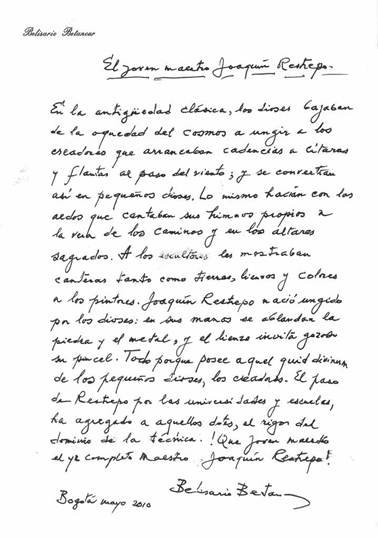 Belisario Betancur
El joven maestro Joaquín Restrepo.
En la antigüedad clásica, los dioses bajaban
de la oquedad del cosmos a ungir a los
creadores que arrancaban cadencias a cítaras
y flautas al paso del viento; y se convertían
así en pequeños dioses. Lo mismo hacían con los
aedos que cantaban sus himnos propios a
la vera de los caminos y en los altares
sagrados. A los escultores les mostraban
canteras tanto como tierras, lienzos y colores
a los pintores. Joaquín Restrepo nació ungido
por los dioses: en sus manos se ablandan la
piedra y el metal, y el lienzo invita gozoso
su pincel. Todo porque posee aquel quid divinum
de los pequeños dioses, los creadores. El paso
de Restrepo por las universidades y escuelas,
ha agregado a aquellos dotes, el rigor del
dominio de la técnica. ¡Que joven maestro
el ya completo Maestro Joaquín Restrepo!
Belisario Betan
Bogotá mayo 2010